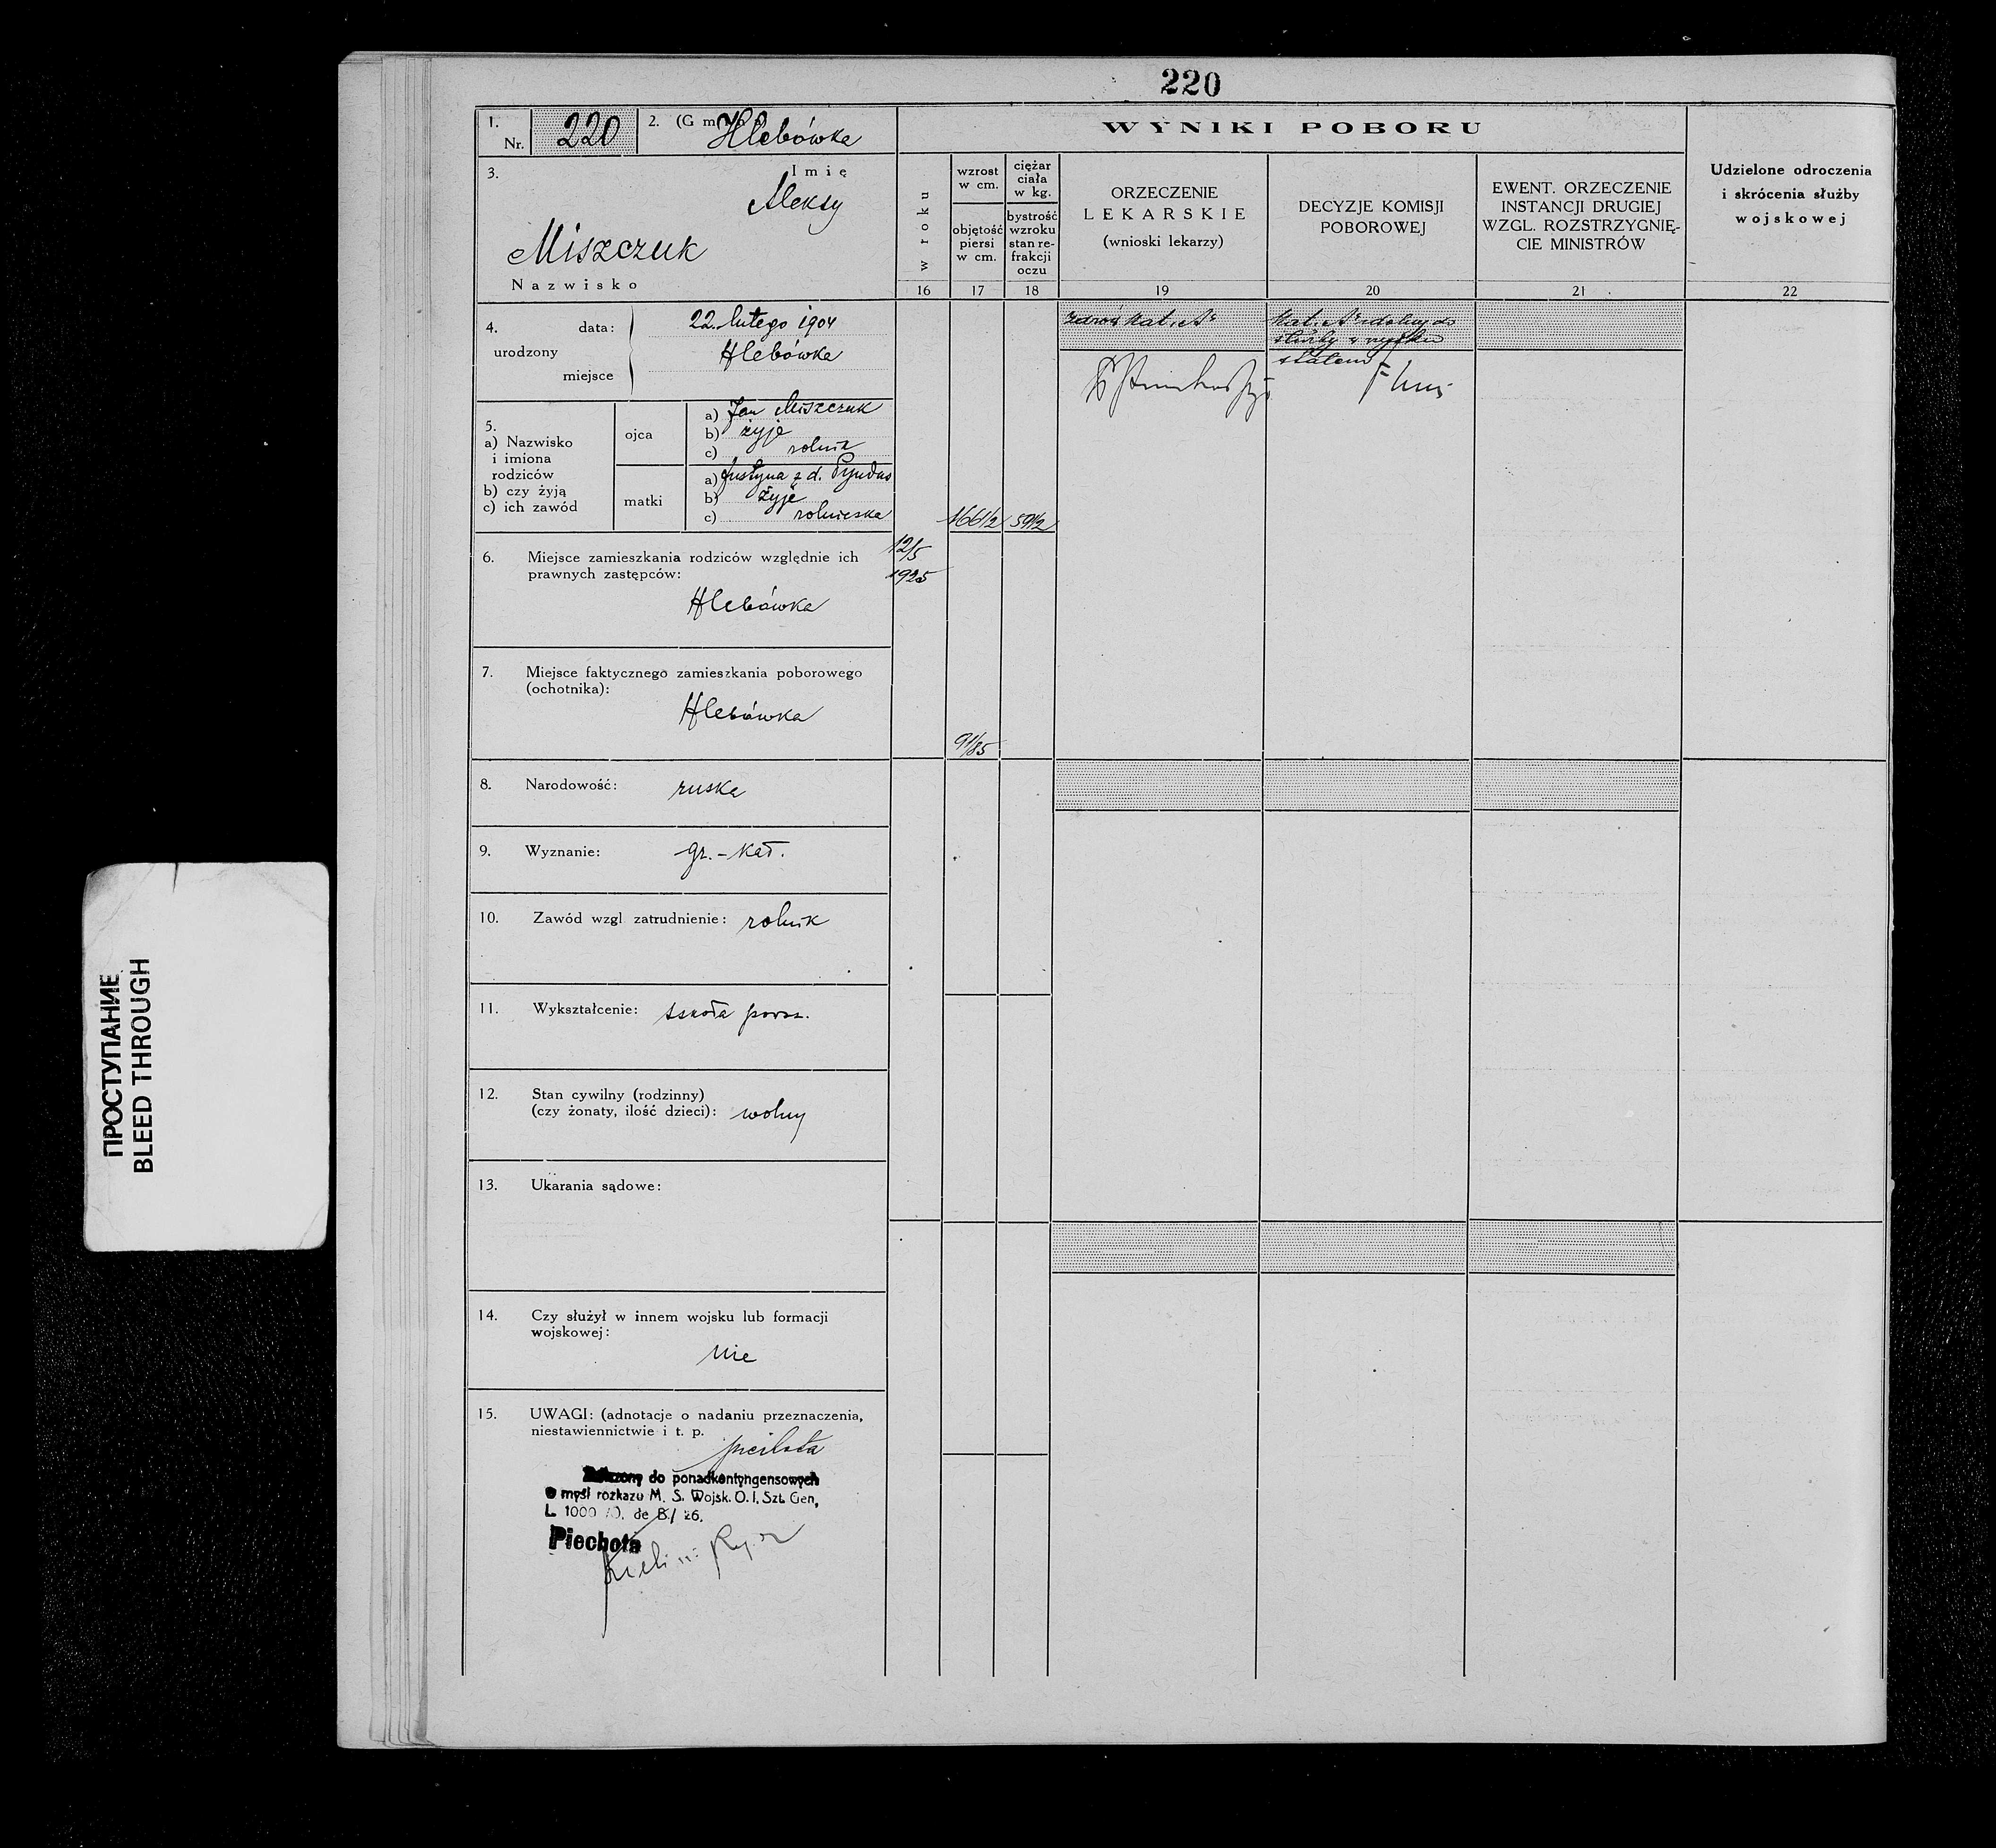 220
1.
Nr. 220
2. (Gmina) Hlebówka
3.
Imię
Aleksy
Miszczuk
Nazwisko
4.
urodzony
data: 22. lutego 1904
Hlebówka
miejsce
5.
a) Nazwisko
i imiona
rodziców
b) czy żyją
c) ich zawód
ojca
a) Jan Miszczuk
b) żyje
c) rolnik
matki
a) Justyna z d.
b) żyje
c) rolniczka
6. Miejsce zamieszkania rodziców względnie ich
prawnych zastępców:
Hlebówka
7. Miejsce faktycznego zamieszkania poborowego
(ochotnika):
Hlebówka
8. Narodowość: ruska
9. Wyznanie: gr.-kat.
10. Zawód wzgl. zatrudnienie: rolnik
11. Wykształcenie: szkoła powsz.
12. Stan cywilny (rodzinny)
(czy żonaty, ilość dzieci): wolny
13. Ukarania sądowe:
14. Czy służył w innem wojsku lub formacji
wojskowej:
Nie
15. UWAGI: (adnotacje o nadaniu przeznaczenia,
niestawiennictwie i t. p.
piechota
do ponadkontyngensowych
w myśl rozkazu M. S. Wojsk. O. I. Szt. Gen.
L. 1000
Piechota
WYNIKI POBORU
w roku
16
12/5
1925
wzrost
w cm.
objętość
piersi
w cm.
17
166 1/2
91/85
ciężar
ciała
w kg.
bystrość
wzroku
stan re-
frakcji
oczu
18
59 1/2
ORZECZENIE
LEKARSKIE
(wnioski lekarzy)
19
zdrów kat. A
DECYZJE KOMISJI
POBOROWEJ
20
kat. A zdolny do
służby w wojsku
stałem
EWENT. ORZECZENIE
INSTANCJI DRUGIEJ
WZGL. ROZSTRZYGNIĘ-
CIE MINISTRÓW
21
Udzielone odroczenia
i skrócenia służby
wojskowej
22
ПРОСТУПАНИЕ
BLEED THROUGH